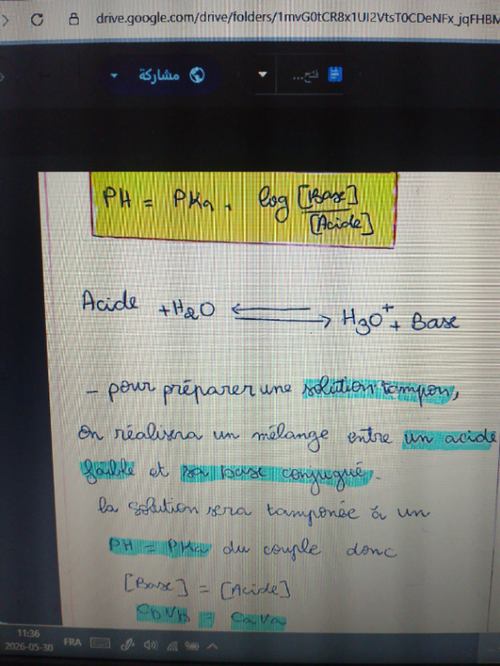 drive.google.com/drive/folders/1mvG0tCR8x1UI2VtsT0CDeNFx_jqFHBM
مشاركة
فتح...
PH = PKa + log [Base]/[Acide]
Acide + H2O ⇌ H3O+ + Base
- pour préparer une solution tampon,
on réalisera un mélange entre un acide
faible et sa base conjugué.
la solution sera tamponée à un
PH = PKa du couple donc
[Base] = [Acide]
CbVb = CaVa
11:36
FRA
2026-05-30